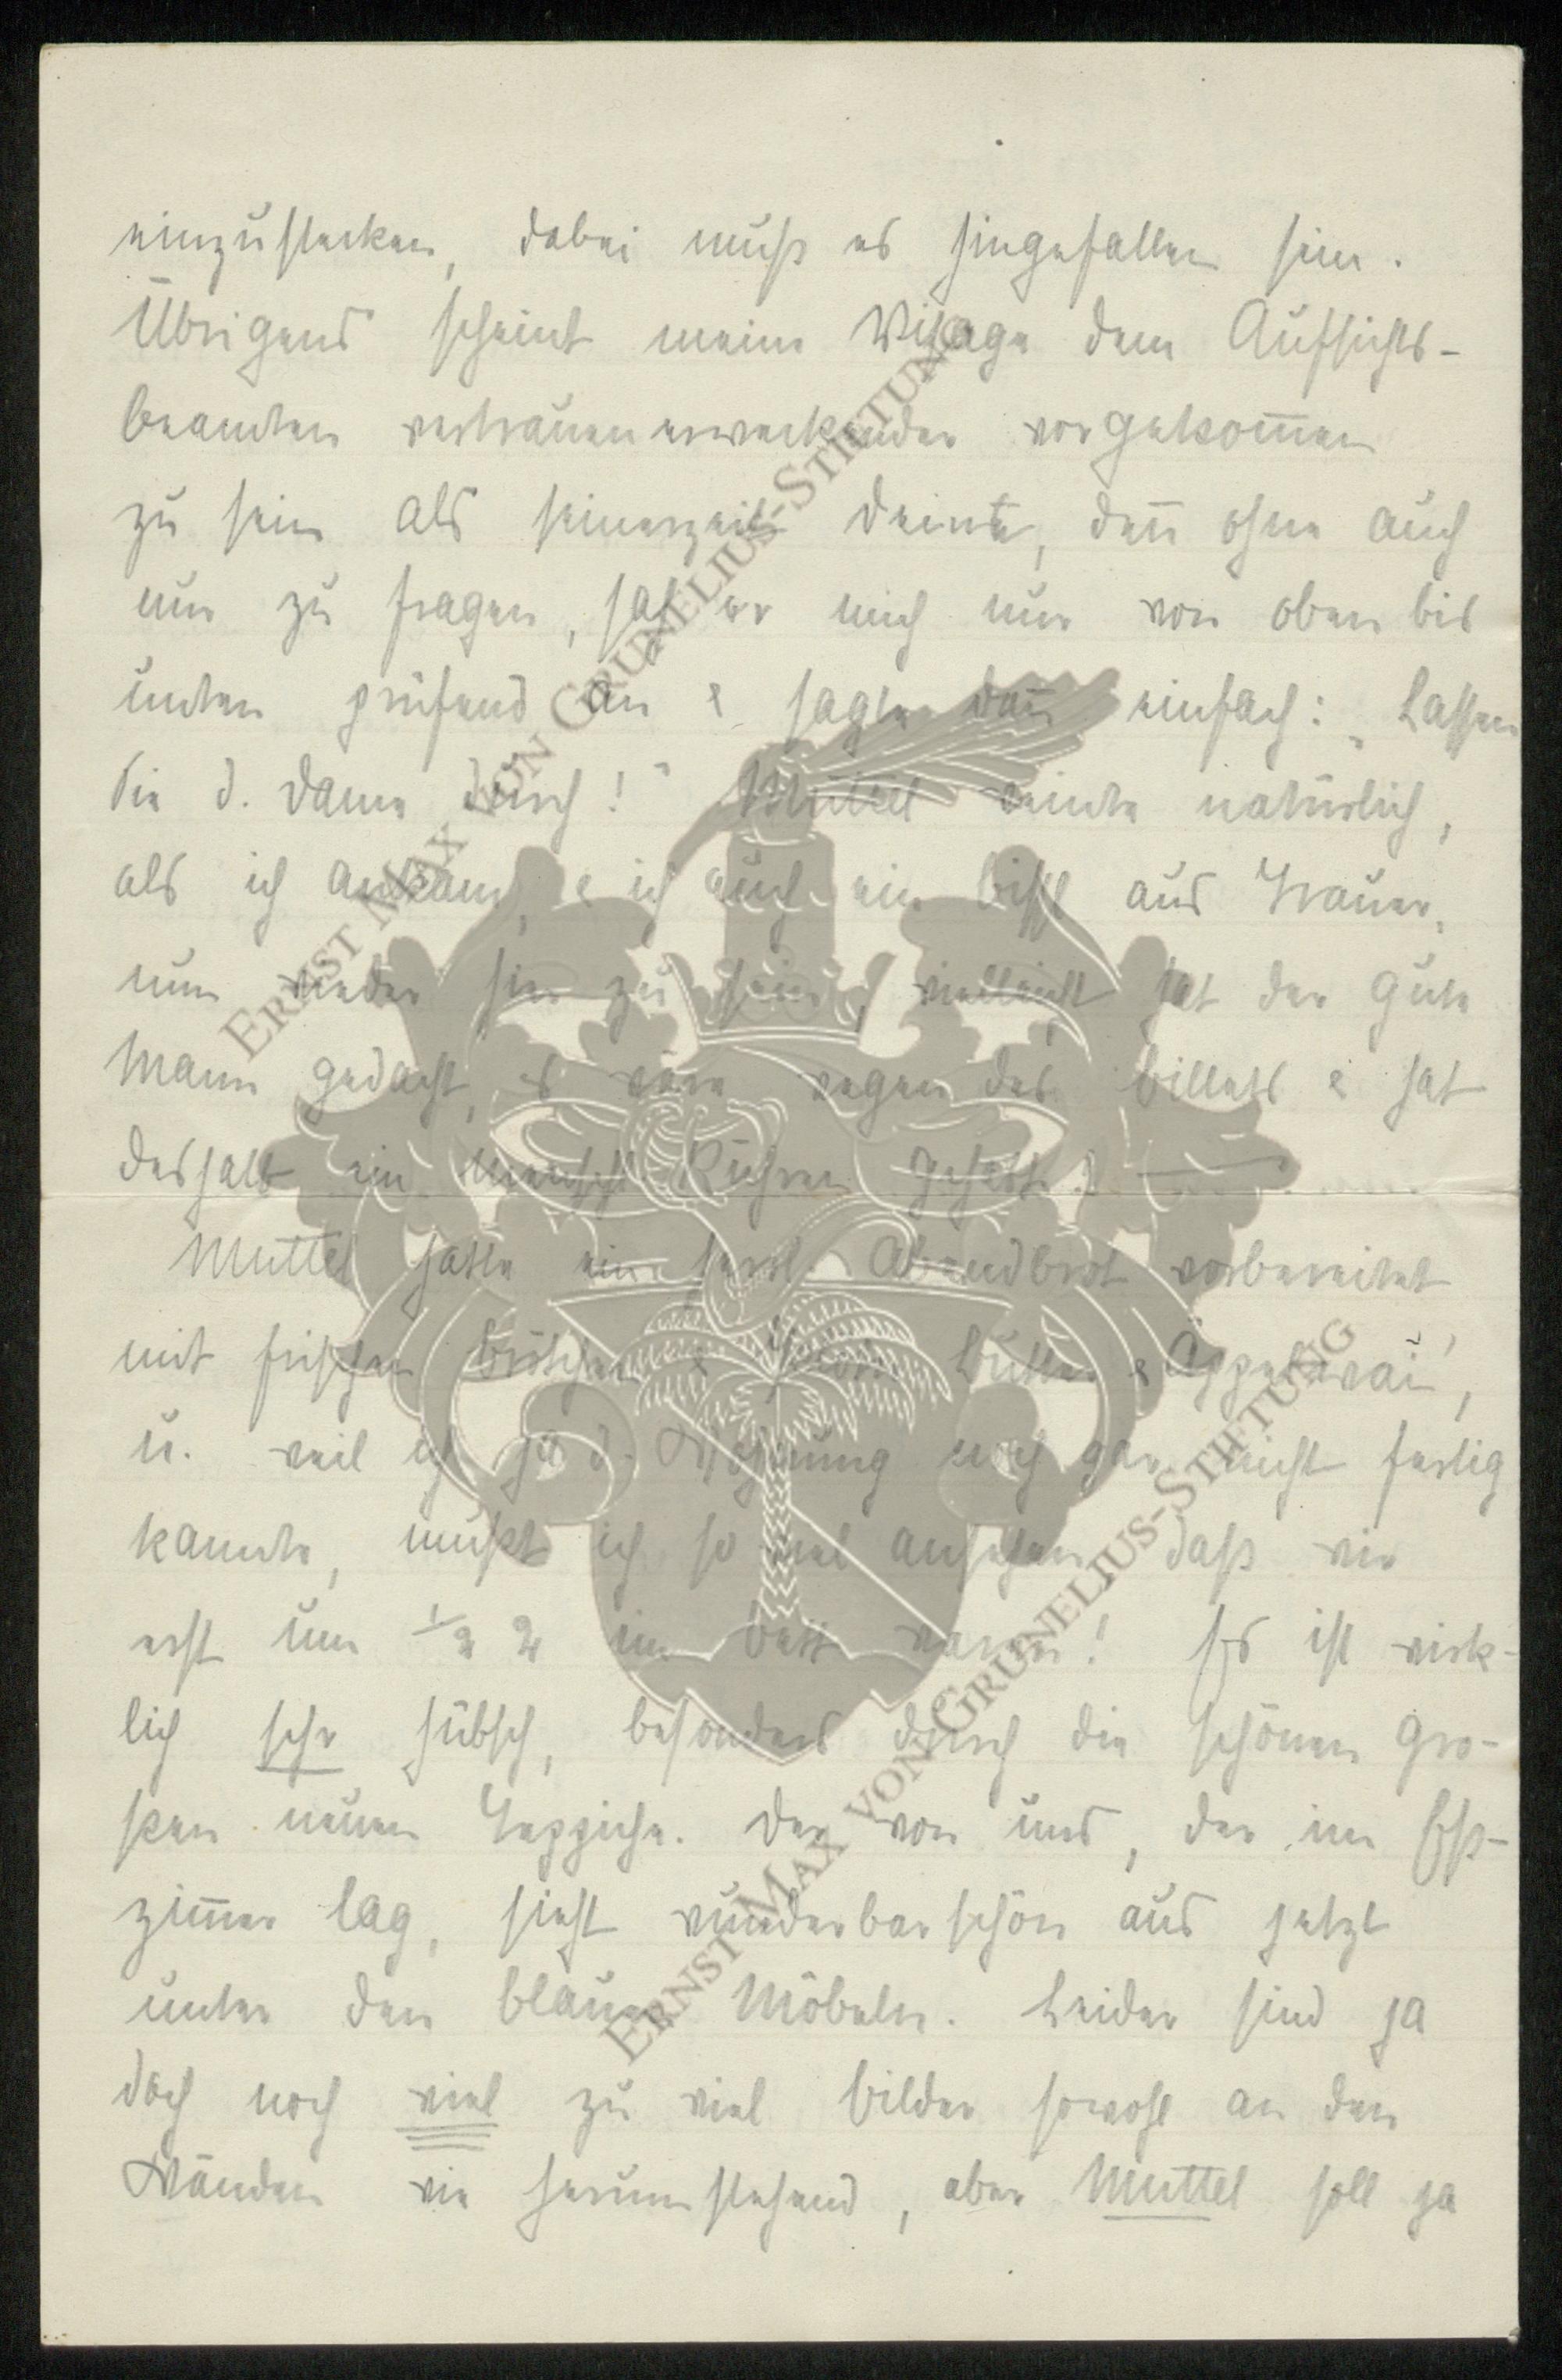 einzustecken, dabei muß es hingefallen sein.
Übrigens scheint meine Visage dem Aufsichts-
beamten vertrauenerweckender vorgekom̅en
zu sein als seinerzeit Deine, den̅ ohne auch
nur zu fragen, sah er mich nur von oben bis
unten prüfend an & sagte dan̅ einfach: „Lassen
Sie d. Dame durch!" Muttel weinte natürlich,
als ich ankam, & ich auch ein bissl aus Trauer,
nun wieder hier zu sein, vielleicht hat der gute
Mann gedacht, es wäre wegen des Billets & hat
deshalb ein menschl. Rühren gehabt?
Muttel hatte ein herrl. Abendbrot vorbereitet
mit frischen Brötchen & Butter & Äppelwai,
u. weil ich ja d. Wohnung noch gar nicht fertig
kannte, mußt ich so viel ansehen, daß wir
erst um ½ 2 im Bett waren! Es ist wirk-
lich sehr hübsch, besonders durch die schönen gro-
ßen neuen Teppiche. Der von uns, der im Eß-
zim̅er lag, sieht wunderbar schön aus jetzt
unter den blauen Möbeln. Leider sind ja
doch noch viel zu viel Bilder sowohl an den
Wänden wie herumstehend, aber Muttel soll ja
ERNST MAX VON GRUNELIUS-STIFTUNG
ERNST MAX VON GRUNELIUS-STIFTUNG